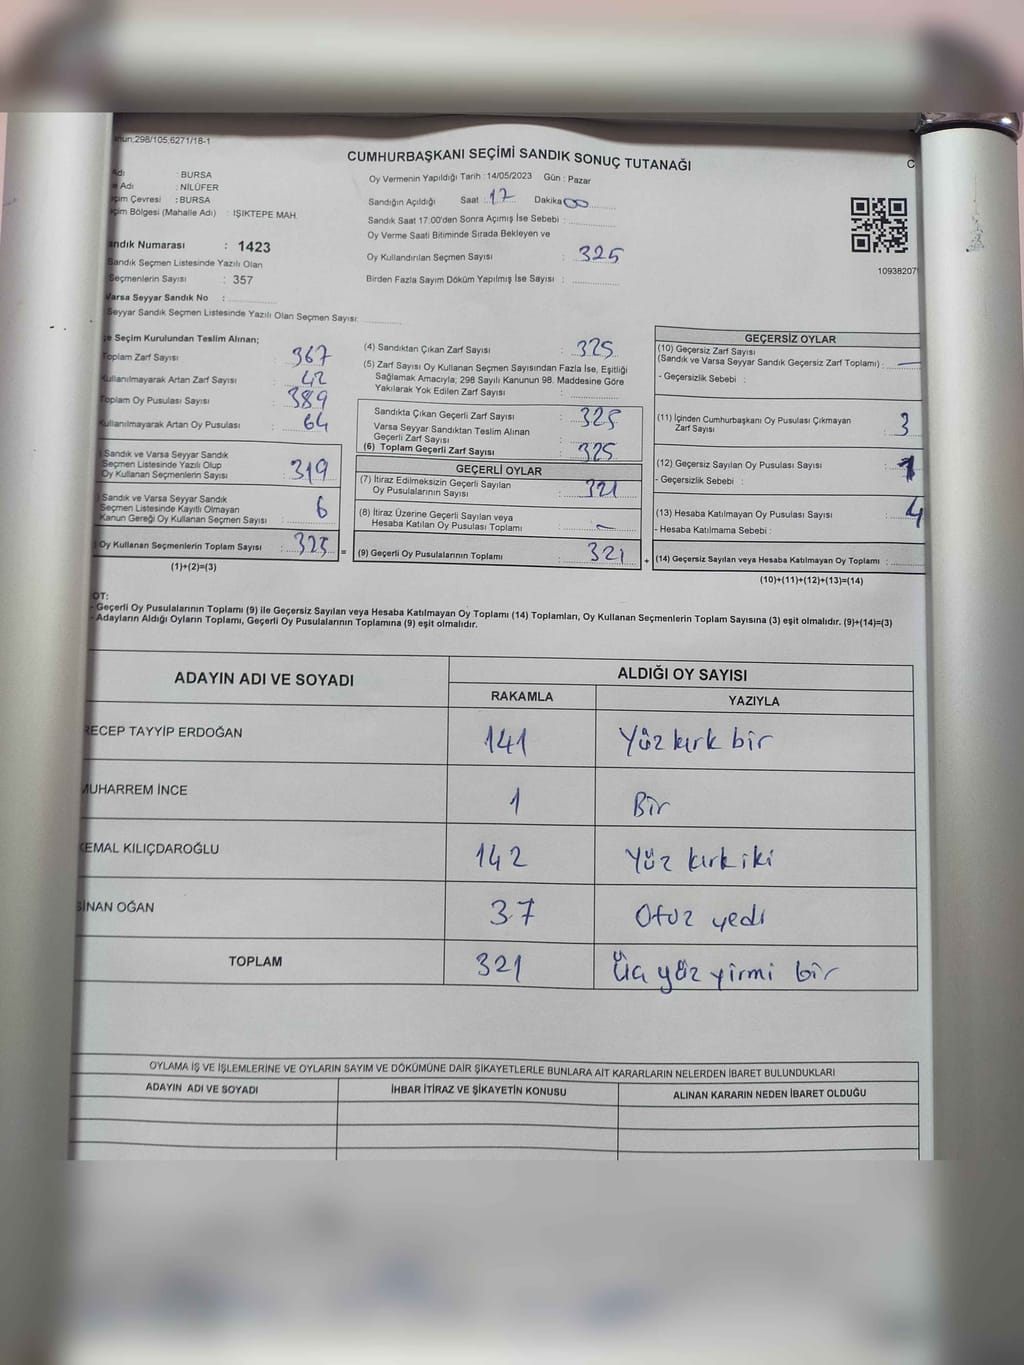 298/105,6271/18-1
CUMHURBAŞKANI SEÇİMİ SANDIK SONUÇ TUTANAĞI
: BURSA
Adı : NİLÜFER
Çevresi : BURSA
Bölgesi (Mahalle Adı) : IŞIKTEPE MAH.
Numarası : 1423
Sandık Seçmen Listesinde Yazılı Olan
Seçmenlerin Sayısı : 357
Varsa Seyyar Sandık No :
Seyyar Sandık Seçmen Listesinde Yazılı Olan Seçmen Sayısı:
Oy Vermenin Yapıldığı Tarih : 14/05/2023 Gün : Pazar
Sandığın Açıldığı Saat : 17 Dakika 00
Sandık Saat 17.00'den Sonra Açımış İse Sebebi :
Oy Verme Saati Bitiminde Sırada Bekleyen ve
Oy Kullandırılan Seçmen Sayısı : 325
Birden Fazla Sayım Döküm Yapılmış İse Sayısı :
Seçim Kurulundan Teslim Alınan;
Toplam Zarf Sayısı : 367
Kullanılmayarak Artan Zarf Sayısı : 42
Toplam Oy Pusulası Sayısı : 389
Kullanılmayarak Artan Oy Pusulası : 64
Sandık ve Varsa Seyyar Sandık
Seçmen Listesinde Yazılı Olup
Oy Kullanan Seçmenlerin Sayısı : 319
Sandık ve Varsa Seyyar Sandık
Seçmen Listesinde Kayıtlı Olmayan
Kanun Gereği Oy Kullanan Seçmen Sayısı : 6
Oy Kullanan Seçmenlerin Toplam Sayısı : 325 =
(1)+(2)=(3)
(4) Sandıktan Çıkan Zarf Sayısı : 325
(5) Zarf Sayısı Oy Kullanan Seçmen Sayısından Fazla İse, Eşitliği
Sağlamak Amacıyla; 298 Sayılı Kanunun 98. Maddesine Göre
Yakılarak Yok Edilen Zarf Sayısı :
Sandıkta Çıkan Geçerli Zarf Sayısı : 325
Varsa Seyyar Sandıktan Teslim Alınan
Geçerli Zarf Sayısı :
(6) Toplam Geçerli Zarf Sayısı : 325
GEÇERLİ OYLAR
(7) İtiraz Edilmeksizin Geçerli Sayılan
Oy Pusulalarının Sayısı : 321
(8) İtiraz Üzerine Geçerli Sayılan veya
Hesaba Katılan Oy Pusulası Toplamı : –
(9) Geçerli Oy Pusulalarının Toplamı : 321 +
GEÇERSİZ OYLAR
(10) Geçersiz Zarf Sayısı
(Sandık ve Varsa Seyyar Sandık Geçersiz Zarf Toplamı) : —
- Geçersizlik Sebebi :
(11) İçinden Cumhurbaşkanı Oy Pusulası Çıkmayan
Zarf Sayısı : 3
(12) Geçersiz Sayılan Oy Pusulası Sayısı : 1
- Geçersizlik Sebebi :
(13) Hesaba Katılmayan Oy Pusulası Sayısı : 4
- Hesaba Katılmama Sebebi :
(14) Geçersiz Sayılan veya Hesaba Katılmayan Oy Toplamı :
(10)+(11)+(12)+(13)=(14)
- Geçerli Oy Pusulalarının Toplamı (9) ile Geçersiz Sayılan veya Hesaba Katılmayan Oy Toplamı (14) Toplamları, Oy Kullanan Seçmenlerin Toplam Sayısına (3) eşit olmalıdır. (9)+(14)=(3)
- Adayların Aldığı Oyların Toplamı, Geçerli Oy Pusulalarının Toplamına (9) eşit olmalıdır.
ADAYIN ADI VE SOYADI
ALDIĞI OY SAYISI
RAKAMLA YAZIYLA
RECEP TAYYİP ERDOĞAN 141 Yüz kırk bir
MUHARREM İNCE 1 Bir
KEMAL KILIÇDAROĞLU 142 Yüz kırk iki
SİNAN OĞAN 37 Otuz yedi
TOPLAM 321 Üç yüz yirmi bir
OYLAMA İŞ VE İŞLEMLERİNE VE OYLARIN SAYIM VE DÖKÜMÜNE DAİR ŞİKAYETLERLE BUNLARA AİT KARARLARIN NELERDEN İBARET BULUNDUKLARI
ADAYIN ADI VE SOYADI İHBAR İTİRAZ VE ŞİKAYETİN KONUSU ALINAN KARARIN NEDEN İBARET OLDUĞU